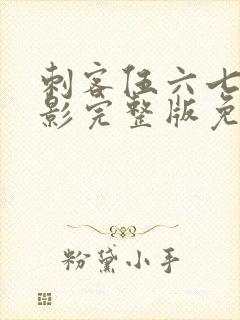 刺客伍六七
影完整版免
粉黛小手